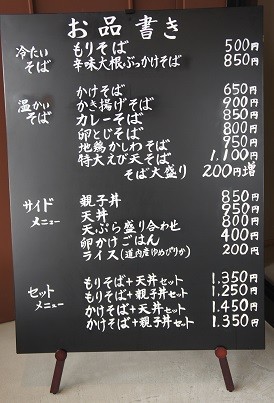 お品書き
冷たいそば
もりそば 500円
辛味大根ぶっかけそば 850円
温かいそば
かけそば 650円
かき揚げそば 900円
カレーそば 850円
卵とじそば 800円
地鶏かしわそば 950円
特大えび天そば 1.100円
そば大盛り 200円増
サイドメニュー
親子丼 850円
天丼 950円
天ぷら盛り合わせ 800円
卵かけごはん 400円
ライス(道内産ゆめぴりか) 200円
セットメニュー
もりそば+天丼セット 1.350円
もりそば+親子丼セット 1.250円
かけそば+天丼セット 1.450円
かけそば+親子丼セット 1.350円